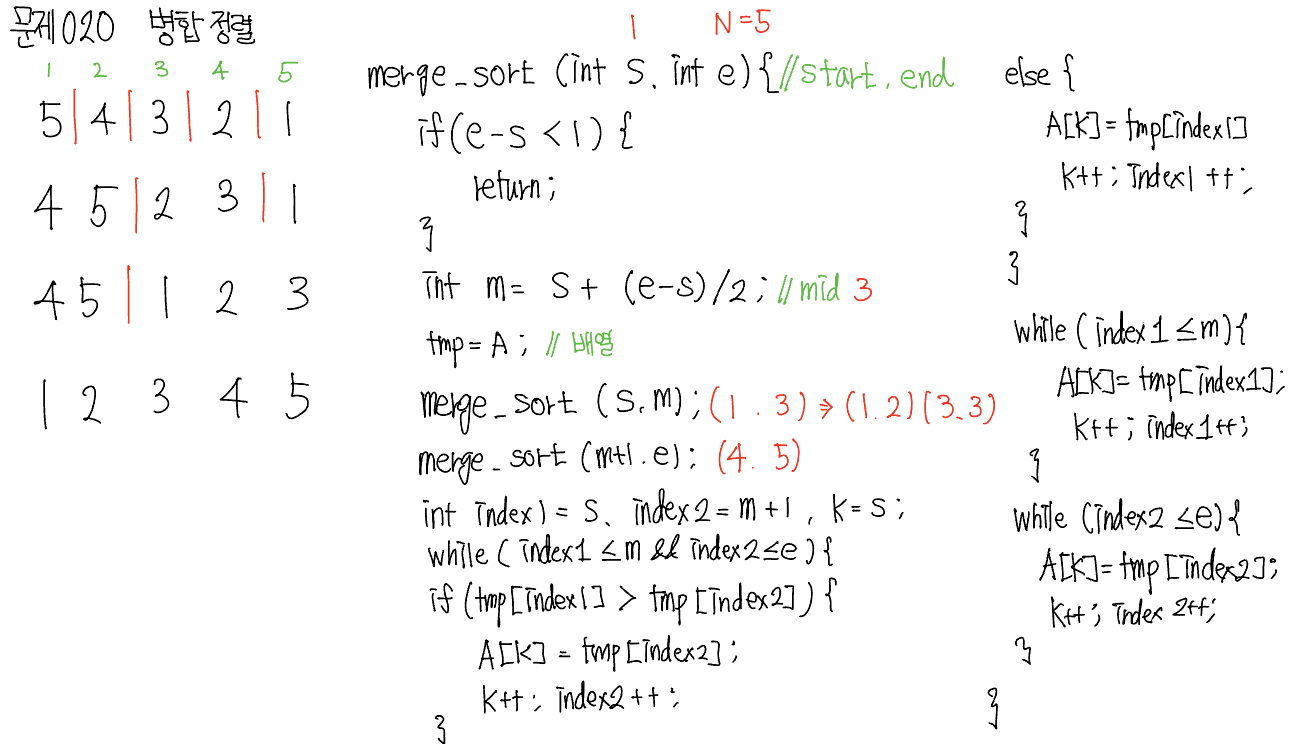 문제020 병합 정렬
1 2 3 4 5
5 | 4 | 3 | 2 | 1
4 5 | 2 3 | 1
4 5 | 1 2 3
1 2 3 4 5
1 N=5
merge_sort (int S, int e) { //start, end
if(e-s < 1) {
return;
}
int m= S+ (e-s)/2; //mid 3
tmp=A; // 배열
merge_sort (S,m); (1.3) → (1.2)(3.3)
merge_sort (m+1.e); (4.5)
int index1= S, index2=m+1, K=S;
while ( index1 ≤m && index2≤e){
if (tmp[index1] > tmp[index2]) {
A[K] = tmp[index2];
K++; index2++;
}
else {
A[K]= tmp[index1]
K++; index1++;
}
}
while ( index1 ≤m){
A[K]= tmp[index1];
K++; index1++;
}
while (index2 ≤e){
A[K]= tmp[index2];
K++; index2++;
}
}